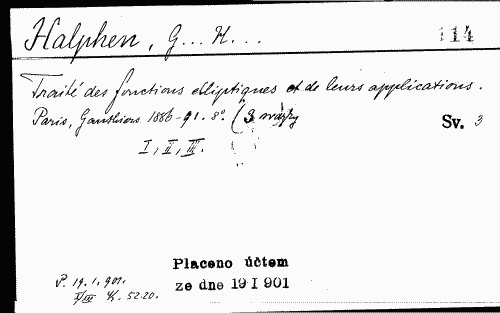 Halphen, G... H...
114
Traité des fonctions elliptiques et de leurs applications.
Paris, Gauthiers 1886-91. 8°. (3 svazky
Sv. 3
I, II, III.
Placeno účtem
ze dne 19 I 901
P. 19. 1. 901.
I/III K. 52.20.